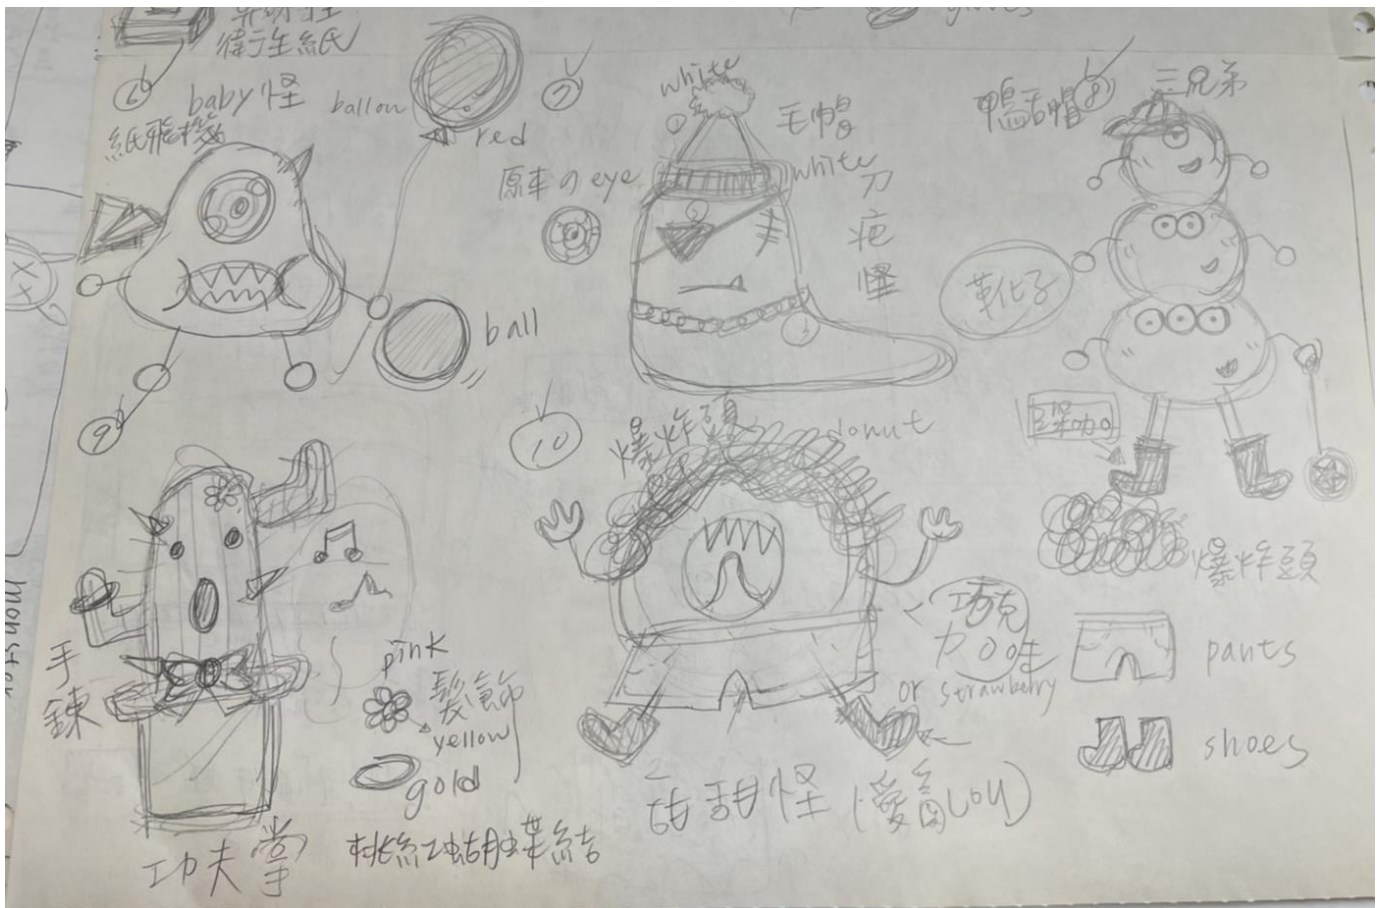 衛生紙
⑥
baby怪
紙飛機
ballon
red
ball
⑦
white
毛帽
white
原本の eye
刀
疤
怪
⑧
三兄弟
鴨舌帽
爆炸頭
pants
shoes
⑨
手
鍊
pink
髮飾
yellow
gold
桃紅蝴蝶結
功夫掌
⑩
爆炸頭
donut
巧克
力
or strawberry
甜怪